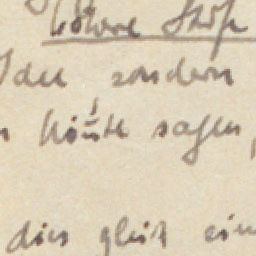 Idee, sondern
könnte sagen,
dies gleich ein